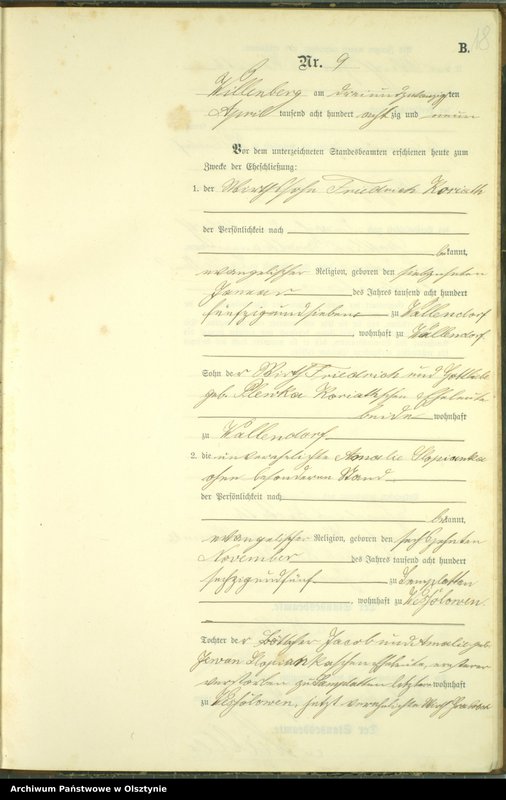 B.
18
Nr. 9
Willenberg am dreiundzwanzigten
April tausend acht hundert achtzig und neun
Vor dem unterzeichneten Standesbeamten erschienen heute zum
Zwecke der Eheschließung:
1. der Wirthssohn Friedrich Koriath
der Persönlichkeit nach
bekannt,
evangelischer Religion, geboren den siebzehnten
Januar des Jahres tausend acht hundert
fünfzigundsieben zu Wallendorf
, wohnhaft zu Wallendorf
Sohn der Wirth Friedrich und Gottliebe
geb. Koriathschen Eheleute
beide wohnhaft
zu Wallendorf
2. die unverehelichte Amalie
ohne besonderen Stand
der Persönlichkeit nach
bekannt,
evangelischer Religion, geboren den sechszehnten
November des Jahres tausend acht hundert
sechzigundfünf zu
, wohnhaft zu
Tochter der Böttcher Jacob und Amalie geb.
Eheleute, ersterer
verstorben zu letztere wohnhaft
zu jetzt verehelichte
Archiwum Państwowe w Olsztynie